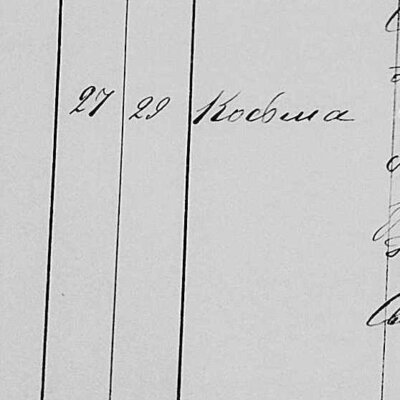 27 29 Косьма